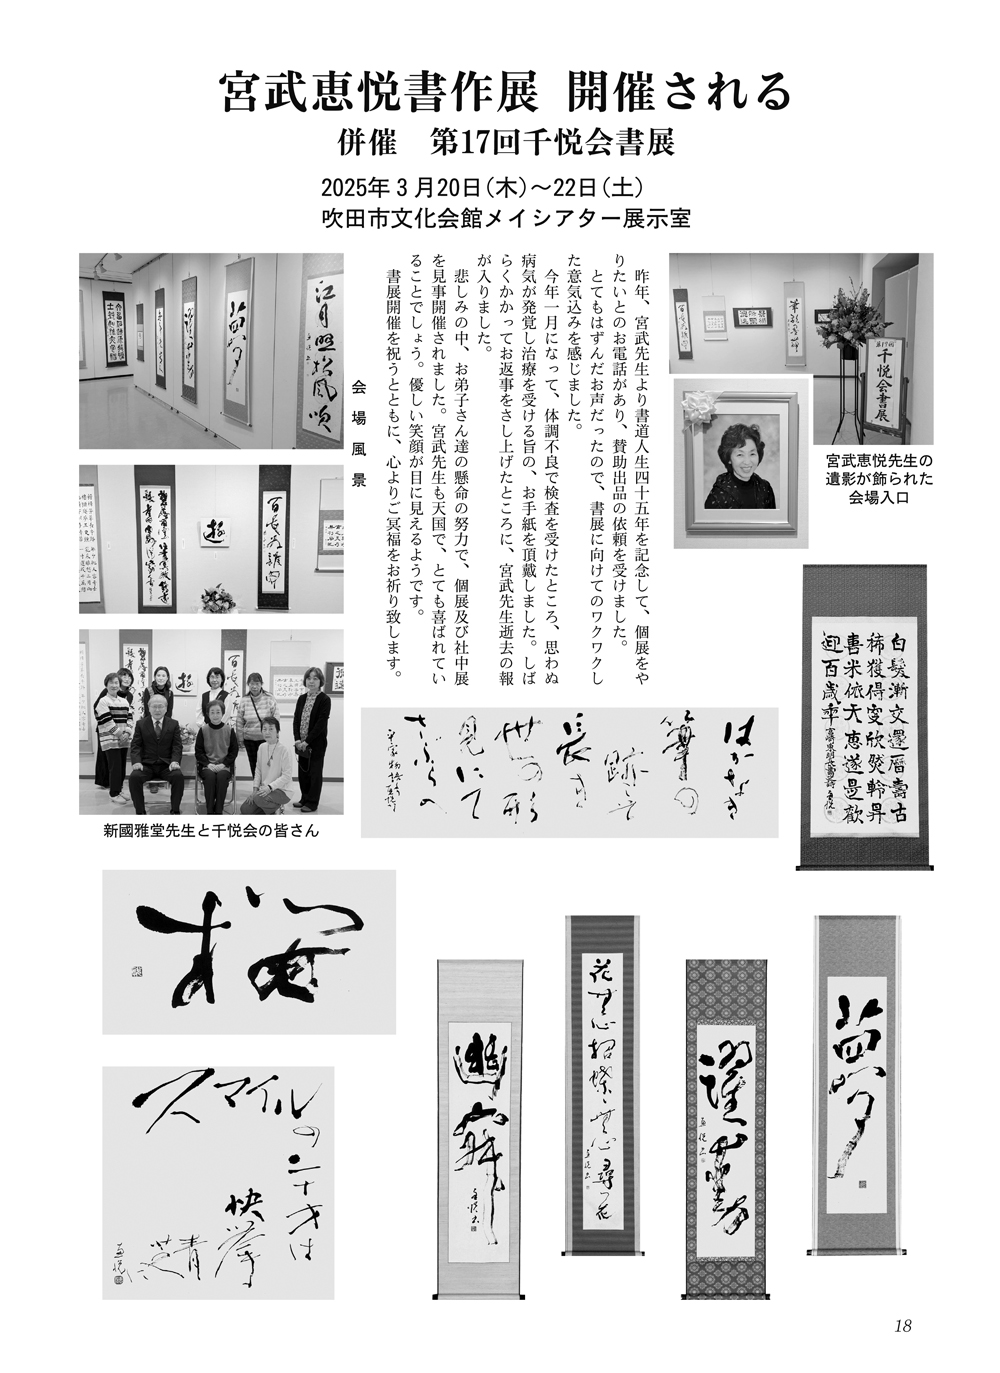 宮武恵悦書作展 開催される
併催　第17回千悦会書展
2025年3月20日(木)～22日(土)
吹田市文化会館メイシアター展示室
昨年、宮武先生より書道人生四十五年を記念して、個展をや
りたいとのお電話があり、賛助出品の依頼を受けました。
とてもはずんだお声だったので、書展に向けてのワクワクし
た意気込みを感じました。
今年一月になって、体調不良で検査を受けたところ、思わぬ
病気が発覚し治療を受ける旨の、お手紙を頂戴しました。しば
らくかかってお返事をさし上げたところに、宮武先生逝去の報
が入りました。
悲しみの中、お弟子さん達の懸命の努力で、個展及び社中展
を見事開催されました。宮武先生も天国で、とても喜ばれてい
ることでしょう。優しい笑顔が目に見えるようです。
書展開催を祝うとともに、心よりご冥福をお祈り致します。
会場風景
江月照松風吹
第17回
千悦会書展
宮武恵悦先生の
遺影が飾られた
会場入口
遊
新國雅堂先生と千悦会の皆さん
はかなき
筆の
跡こそ
長き
世の形
見にて
さぶらへ
白髪漸交還暦壽古
稀獲得更欣然齢昇
喜米依天恵遂是歓
迎百歳年
梅
スマイルの
二十才は
快挙
青芝
花無心招蝶蝶無心尋花
18